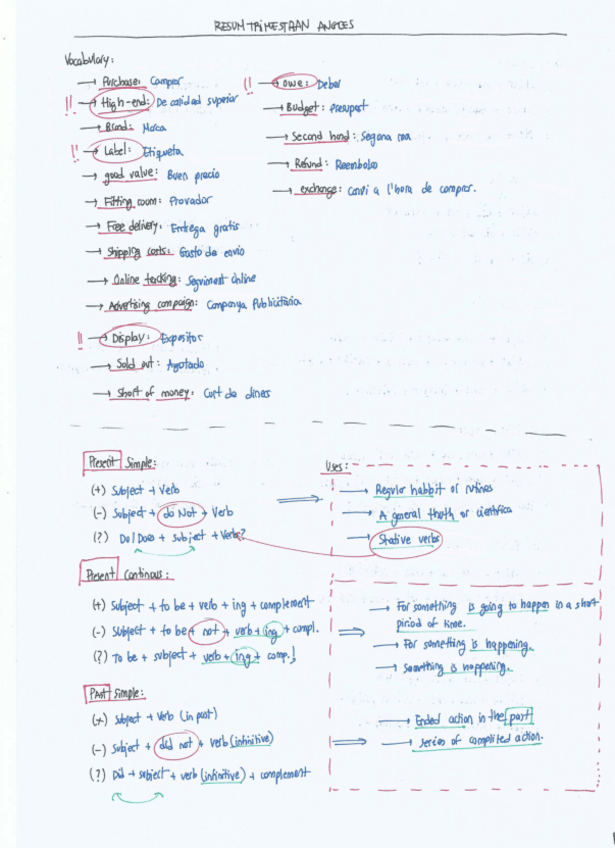 RESUM TRIMESTRAL ANGLÈS
Vocabulary:
→ Purchase: Comprar
!! → High-end: De calidad superior
→ Brand: Marca
!! → Label: Etiqueta
→ good value: Buen precio
→ Fitting room: Provador
→ Free delivery: Entrega gratis
→ Shipping costs: Gasto de envio
→ Online tracking: Seguiment Online
→ Advertising campaign: Companya Publicitària
!! → Display: Expositor
→ Sold out: Agotado
→ Short of money: Curt de diners
!! → owe: Deber
→ Budget: Presupost
→ Second hand: Segona ma
→ Refund: Reembolso
→ exchange: Canvi a l'hora de comprar.
Present Simple:
(+) Subject + Verb
(-) Subject + do Not + Verb
(?) Do/Does + subject + Verb?
Uses:
→ Regular habbit or rutines
→ A general thuth or cientifica
→ Stative verbs
Present Continous:
(+) Subject + to be + verb + ing + complement
(-) Subject + to be + not + verb + ing + compl.
(?) To be + subject + verb + ing + comp.!
→ For something is going to happen in a short
piriod of time.
→ For something is happening.
→ Something is happening.
Past Simple:
(+) Subject + Verb (in past)
(-) Subject + did not + verb (infinitive)
(?) Did + subject + verb (infinitive) + complement
→ Ended action in the past
→ series of complited action.